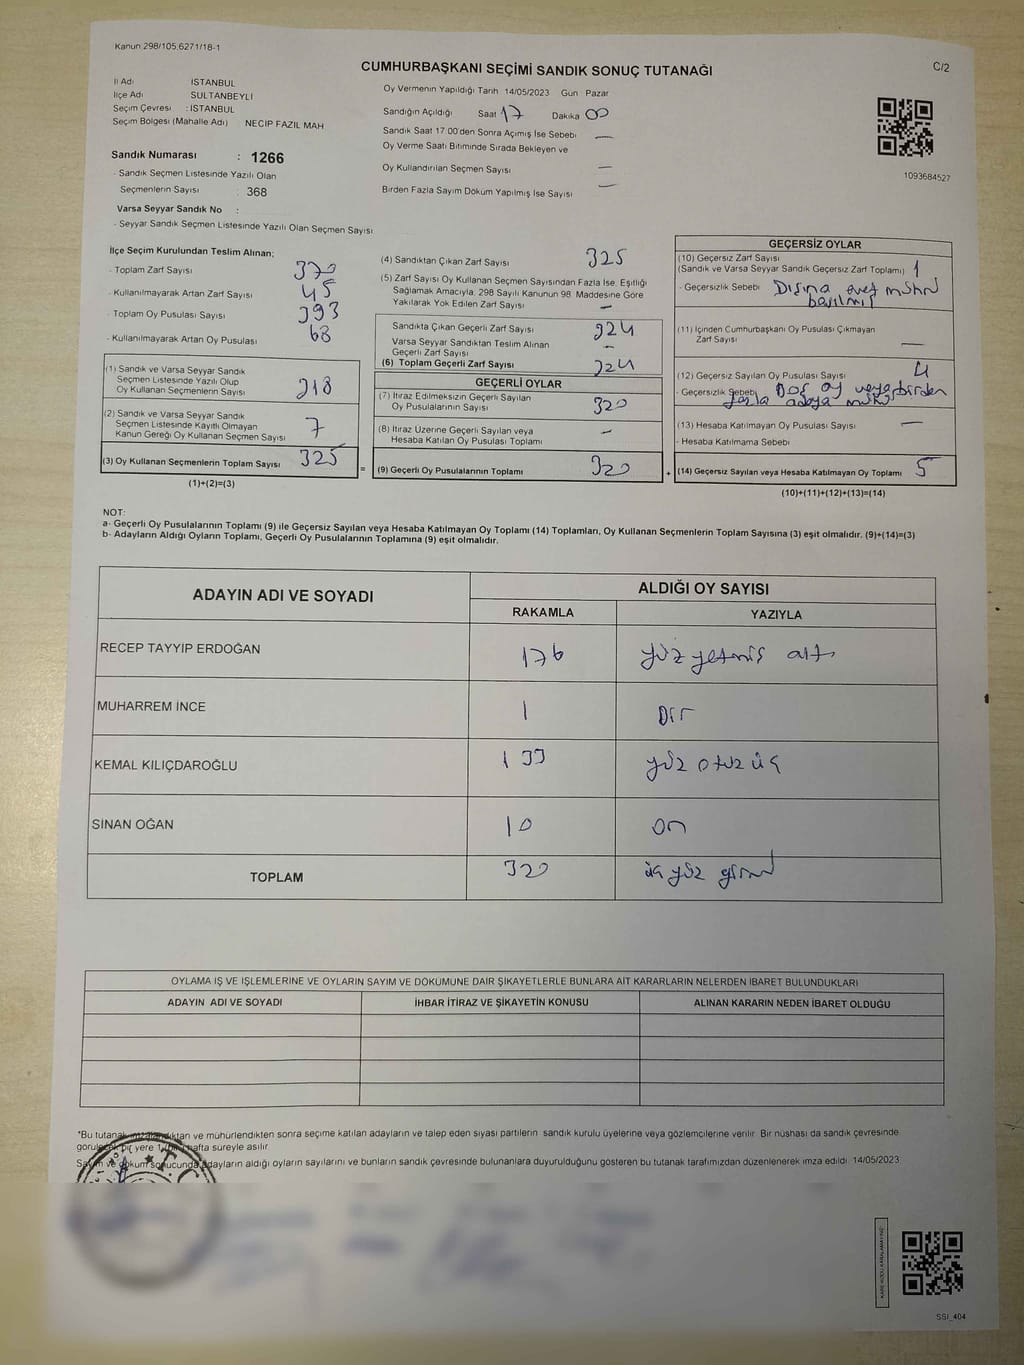 Kanun 298/105,6271/18-1
C/2
CUMHURBAŞKANI SEÇİMİ SANDIK SONUÇ TUTANAĞI
İl Adı İSTANBUL
İlçe Adı SULTANBEYLİ
Seçim Çevresi : İSTANBUL
Seçim Bölgesi (Mahalle Adı) NECİP FAZIL MAH
Sandık Numarası : 1266
- Sandık Seçmen Listesinde Yazılı Olan
Seçmenlerin Sayısı : 368
Varsa Seyyar Sandık No :
- Seyyar Sandık Seçmen Listesinde Yazılı Olan Seçmen Sayısı
Oy Vermenin Yapıldığı Tarih 14/05/2023 Gün Pazar
Sandığın Açıldığı Saat 17 Dakika 00
Sandık Saat 17:00'den Sonra Açımış İse Sebebi —
Oy Verme Saati Bitiminde Sırada Bekleyen ve
Oy Kullandırılan Seçmen Sayısı —
Birden Fazla Sayım Döküm Yapılmış İse Sayısı —
1093684527
İlçe Seçim Kurulundan Teslim Alınan;
- Toplam Zarf Sayısı 370
- Kullanılmayarak Artan Zarf Sayısı 45
- Toplam Oy Pusulası Sayısı 393
- Kullanılmayarak Artan Oy Pusulası 68
(1) Sandık ve Varsa Seyyar Sandık
Seçmen Listesinde Yazılı Olup
Oy Kullanan Seçmenlerin Sayısı 318
(2) Sandık ve Varsa Seyyar Sandık
Seçmen Listesinde Kayıtlı Olmayan
Kanun Gereği Oy Kullanan Seçmen Sayısı 7
(3) Oy Kullanan Seçmenlerin Toplam Sayısı 325
(1)+(2)=(3)
(4) Sandıktan Çıkan Zarf Sayısı 325
(5) Zarf Sayısı Oy Kullanan Seçmen Sayısından Fazla İse, Eşitliği
Sağlamak Amacıyla, 298 Sayılı Kanunun 98. Maddesine Göre
Yakılarak Yok Edilen Zarf Sayısı —
Sandıkta Çıkan Geçerli Zarf Sayısı 324
Varsa Seyyar Sandıktan Teslim Alınan
Geçerli Zarf Sayısı —
(6) Toplam Geçerli Zarf Sayısı 324
GEÇERLİ OYLAR
(7) İtiraz Edilmeksizin Geçerli Sayılan
Oy Pusulalarının Sayısı 320
(8) İtiraz Üzerine Geçerli Sayılan veya
Hesaba Katılan Oy Pusulası Toplamı —
= (9) Geçerli Oy Pusulalarının Toplamı 320 +
GEÇERSİZ OYLAR
(10) Geçersiz Zarf Sayısı
(Sandık ve Varsa Seyyar Sandık Geçersiz Zarf Toplamı) 1
- Geçersizlik Sebebi Dışına evet mührü
basılmış
(11) İçinden Cumhurbaşkanı Oy Pusulası Çıkmayan
Zarf Sayısı —
(12) Geçersiz Sayılan Oy Pusulası Sayısı 4
- Geçersizlik Sebebi Boş oy veya birden
fazla adaya mühür
(13) Hesaba Katılmayan Oy Pusulası Sayısı —
- Hesaba Katılmama Sebebi
(14) Geçersiz Sayılan veya Hesaba Katılmayan Oy Toplamı 5
(10)+(11)+(12)+(13)=(14)
NOT:
a- Geçerli Oy Pusulalarının Toplamı (9) ile Geçersiz Sayılan veya Hesaba Katılmayan Oy Toplamı (14) Toplamları, Oy Kullanan Seçmenlerin Toplam Sayısına (3) eşit olmalıdır. (9)+(14)=(3)
b- Adayların Aldığı Oyların Toplamı, Geçerli Oy Pusulalarının Toplamına (9) eşit olmalıdır.
ADAYIN ADI VE SOYADI ALDIĞI OY SAYISI
RAKAMLA YAZIYLA
RECEP TAYYİP ERDOĞAN 176 yüz yetmiş altı
MUHARREM İNCE 1 Bir
KEMAL KILIÇDAROĞLU 133 yüz otuz üç
SİNAN OĞAN 10 on
TOPLAM 320 üç yüz yirmi
OYLAMA İŞ VE İŞLEMLERİNE VE OYLARIN SAYIM VE DÖKÜMÜNE DAİR ŞİKAYETLERLE BUNLARA AİT KARARLARIN NELERDEN İBARET BULUNDUKLARI
ADAYIN ADI VE SOYADI İHBAR İTİRAZ VE ŞİKAYETİN KONUSU ALINAN KARARIN NEDEN İBARET OLDUĞU
*Bu tutanak imzalandıktan ve mühürlendikten sonra seçime katılan adayların ve talep eden siyasi partilerin sandık kurulu üyelerine veya gözlemcilerine verilir. Bir nüshası da sandık çevresinde
görülecek bir yere 1 hafta süreyle asılır.
Sayım ve döküm sonucunda adayların aldığı oyların sayılarını ve bunların sandık çevresinde bulunanlara duyurulduğunu gösteren bu tutanak tarafımızdan düzenlenerek imza edildi. 14/05/2023
T.C.
KARE KODU KARALAMAYINIZ
SSI_404